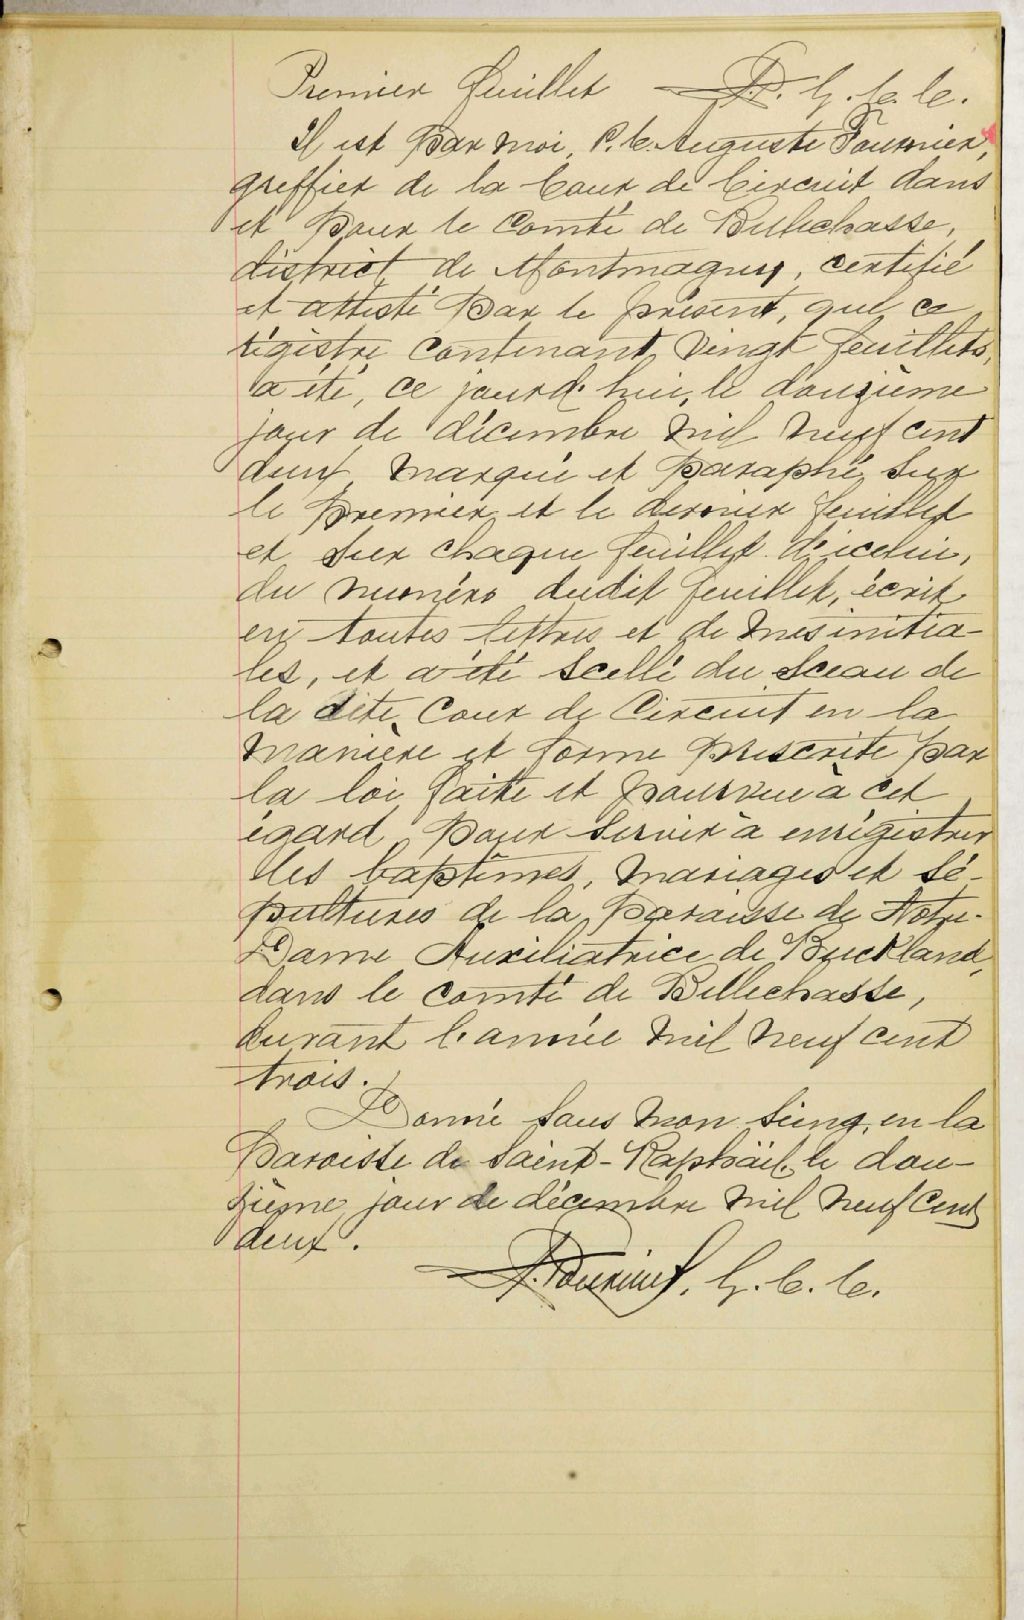 Premier feuillet G. C. C.
Il est par moi, P. C. Auguste Fournier,
greffier de la Cour de Circuit dans
et pour le Comté de Bellechasse,
district de Montmagny, certifié
et attesté par le présent, que ce
régistre contenant vingt feuillets,
a été, ce jourd'hui, le douzième
jour de décembre mil neuf cent
deux, marqué et paraphé sur
le premier et le dernier feuillet
et sur chaque feuillet d'icelui,
du numéro dudit feuillet, écrit
en toutes lettres et de mes initia-
les, et a été scellé du sceau de
la dite Cour de Circuit en la
manière et forme prescrite par
la loi faite et pourvue à cet
égard, pour servir à enrégistrer
les baptêmes, mariages et sé-
pultures de la paroisse de Notre-
Dame Auxiliatrice de Buckland,
dans le comté de Bellechasse,
durant l'année mil neuf cent
trois.
Donné sous mon seing, en la
Paroisse de Saint-Raphäel, le dou-
zième jour de décembre mil neuf cent
deux.
A. Fournier, G. C. C.